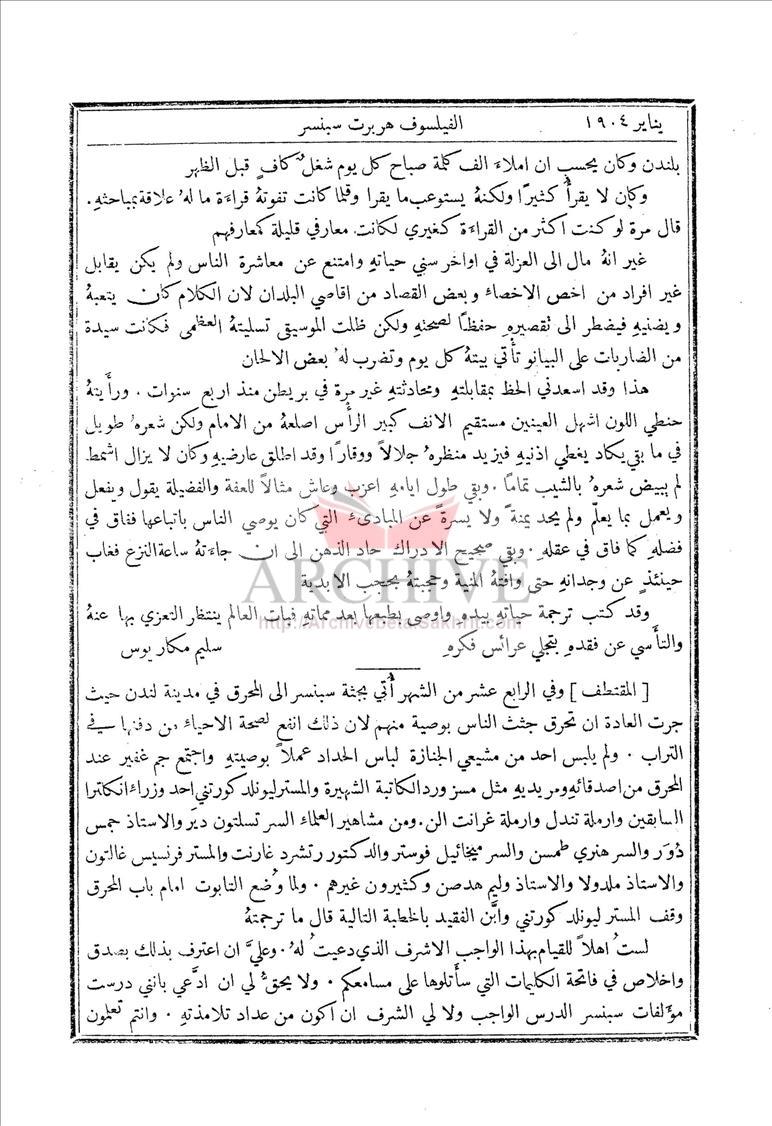 يناير ١٩٠٤
الفيلسوف هربرت سبنسر
بلندن وكان يحسب ان املاءَ الف كلمة صباح كل يوم شغلٌ كافٍ قبل الظهر
وكان لا يقرأُ كثيرًا ولكنهُ يستوعب ما يقرا وقلما كانت تفوتهُ قراءة ما لهُ علاقة بمباحثهِ.
قال مرة لو كنت اكثر من القراءة كغيري لكانت معارفي قليلة كمعارفهم
غير انهُ مال الى العزلة في اواخر سني حياتهِ وامتنع عن معاشرة الناس ولم يكن يقابل
غير افراد من اخص الاخصاء وبعض القصاد من اقاصي البلدان لان الكلام كان يتعبهُ
ويضنيهِ فيضطر الى تقصيرهِ حفظًا لصحتهِ ولكن ظلت الموسيقى تسليتهُ العظمى فكانت سيدة
من الضاربات على البيانو تأتي بيتهُ كل يوم وتضرب لهُ بعض الالحان
هذا وقد اسعدني الحظ بمقابلتهِ ومحادثتهِ غير مرة في بريطن منذ اربع سنوات. ورأيتهُ
حنطي اللون اشهل العينين مستقيم الانف كبير الرأس اصلعهُ من الامام ولكن شعرهُ طويل
في ما بقي يكاد يغطي اذنيهِ فيزيد منظرهُ جلالاً ووقارًا وقد اطلق عارضيهِ وكان لا يزال اشمط
لم يبيض شعرهُ بالشيب تمامًا. وبقي طول ايامهِ اعزب وعاش مثالاً للعفة والفضيلة يقول ويفعل
ويعمل بما يعلّم ولم يحد يمنةً ولا يسرةً عن المبادئ التي كان يوصي الناس باتباعها ففاق في
فضلهِ كما فاق في عقلهِ. وبقي صحيح الادراك حاد الذهن الى ان جاءتهُ ساعة النزع فغاب
حينئذٍ عن وجدانهِ حتى وافتهُ المنية وحجبتهُ بحجب الابدية
وقد كتب ترجمة حياتهِ بيدهِ واوصى بطبعها بعد مماتهِ فبات العالم ينتظار التعزي بها عنهُ
والتأسي عن فقدهِ بتجلي عرائس فكرهِ
سليم مكاريوس
[المقتطف] وفي الرابع عشر من الشهر أُتي بجثة سبنسر الى المحرق في مدينة لندن حيث
جرت العادة ان تحرق جثث الناس بوصية منهم لان ذلك انفع لصحة الاحياء من دفنها في
التراب. ولم يلبس احد من مشيعي الجنازة لباس الحداد عملاً بوصيتهِ واجتمع جم غفير عند
المحرق من اصدقائهِ ومريديهِ مثل مسز ورد الكاتبة الشهيرة والمستر ليونلد كورتني احد وزراء انكلترا
السابقين وارملة تندل وارملة غرانت الن. ومن مشاهير العلماء السر تسلتون دير والاستاذ جمس
دُوَر والسر هنري طمسن والسر ميخائيل فوستر والدكتور رتشرد غارنت والمستر فرنسيس غالتون
والاستاذ ملدولا والاستاذ وليم هدصن وكثيرون غيرهم. ولما وُضع التابوت امام باب المحرق
وقف المستر ليونلد كورتني وابَّن الفقيد بالخطبة التالية قال ما ترجمتهُ
لستُ اهلاً للقيام بهذا الواجب الاشرف الذي دعيتُ لهُ. وعليَّ ان اعترف بذلك بصدق
واخلاص في فاتحة الكلمات التي سأتلوها على مسامعكم. ولا يحقُّ لي ان ادّعي بانني درست
مؤلفات سبنسر الدرس الواجب ولا لي الشرف ان اكون من عداد تلامذتهِ. وانتم تعلمون
ARCHIVE
http://Archivebeta.Sakhrit.com